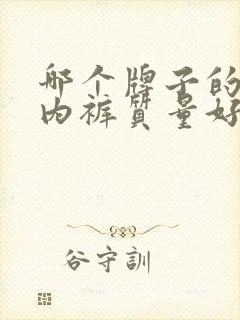 哪个牌子的
内裤质量好
谷守訓